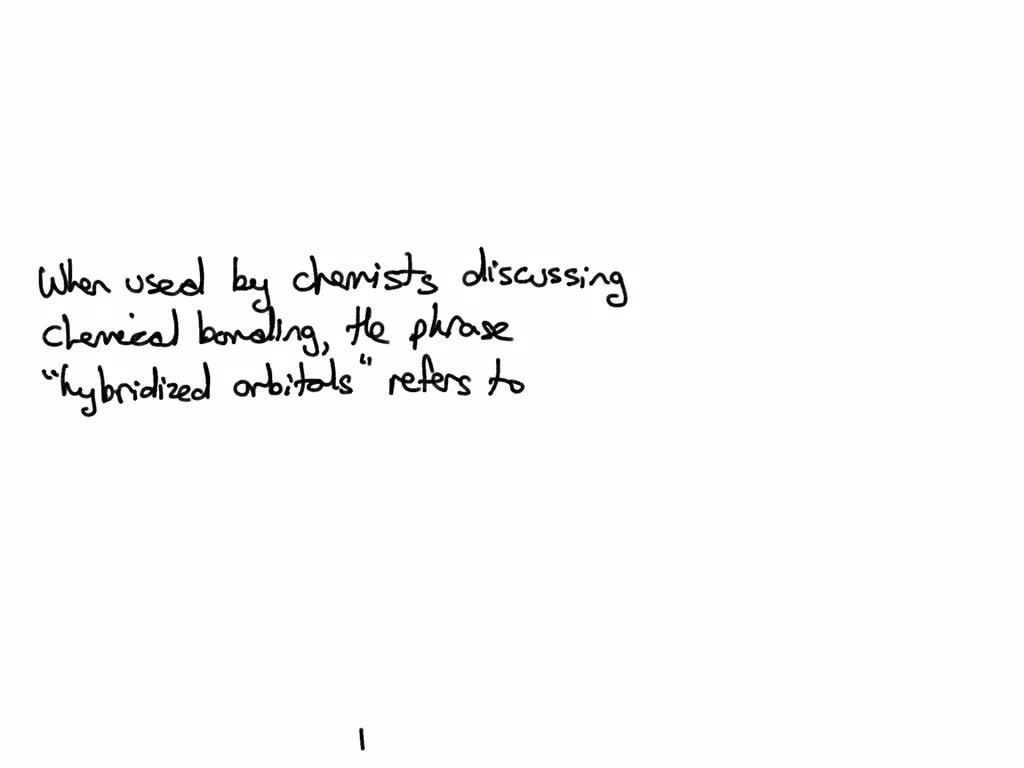 When used by chemists discussing
chemical bonding, the phrase
"hybridized orbitals" refers to